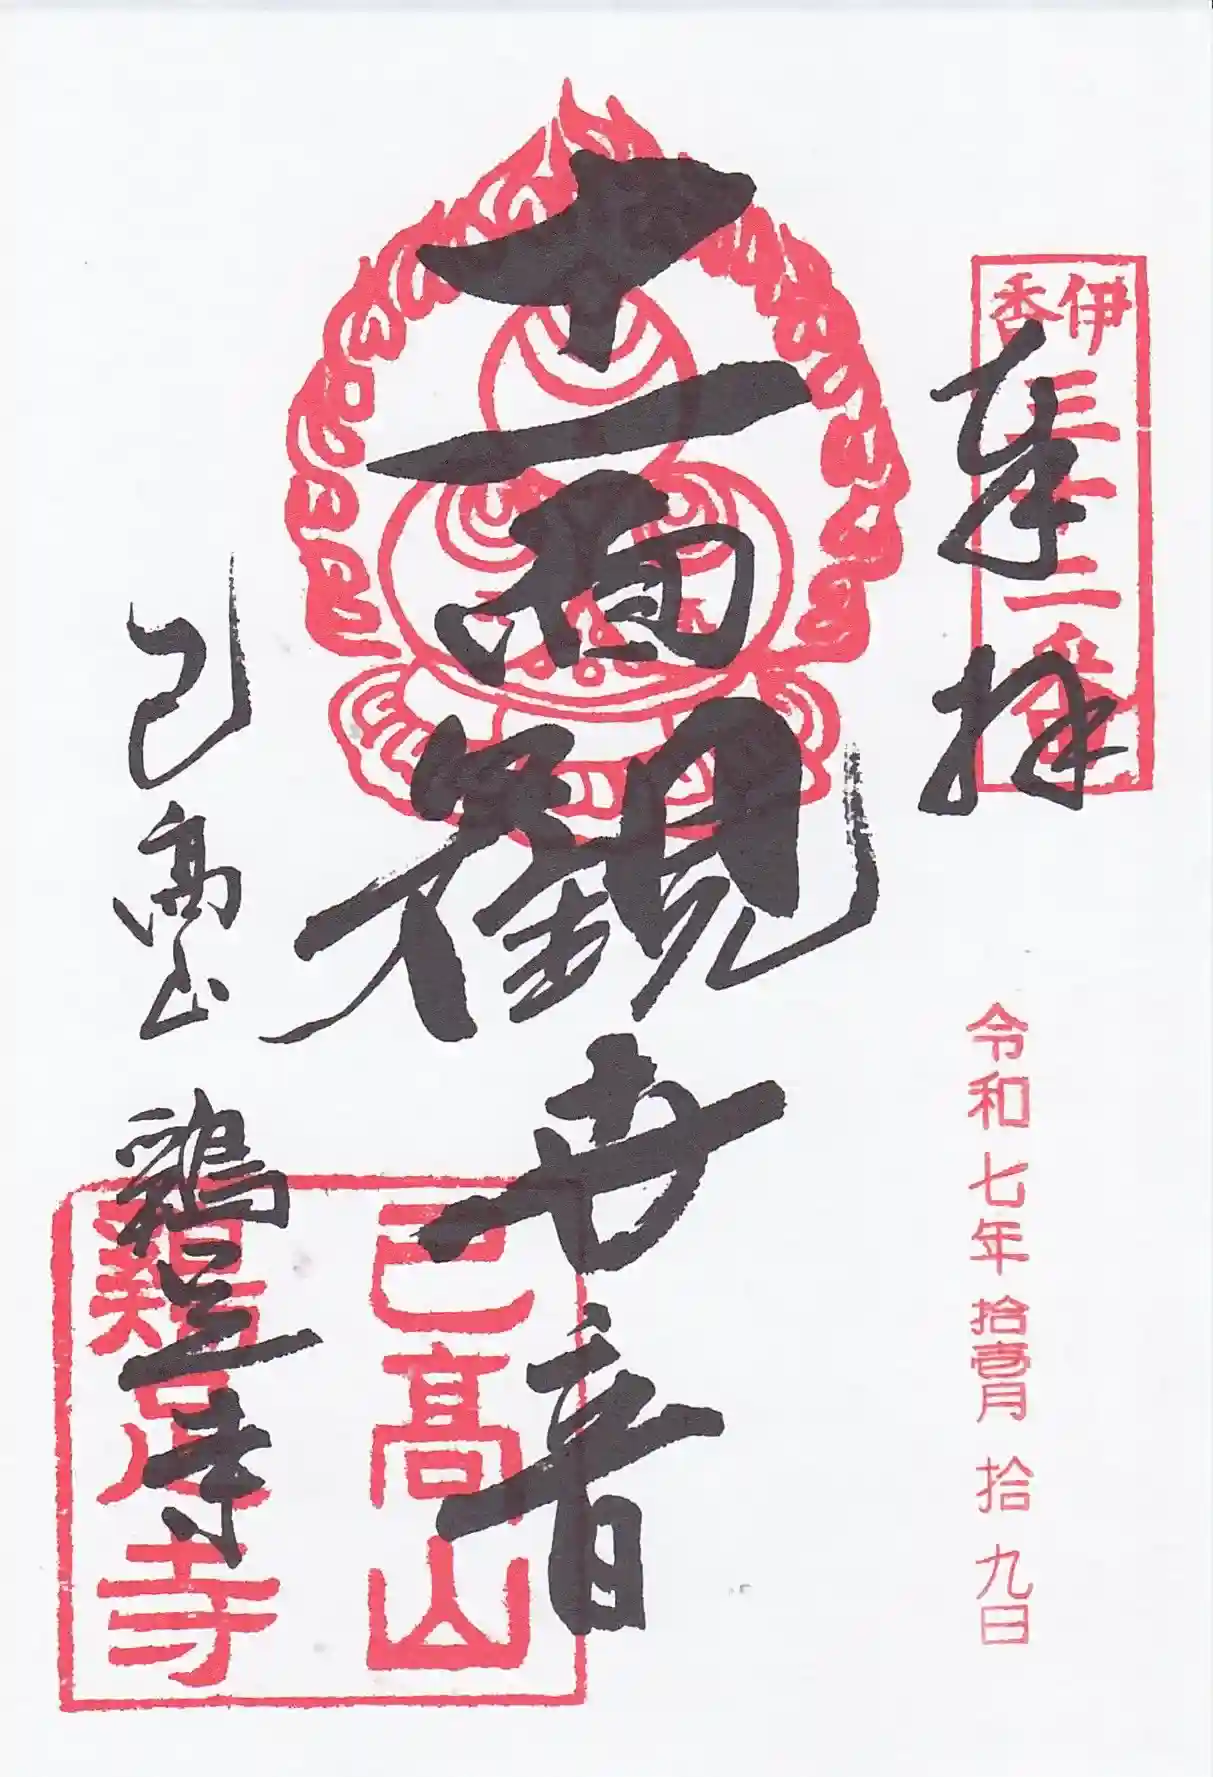 伊香三十二番
奉拝
令和七年拾壱月拾九日
十一面観世音
己高山
鶏足寺
己高山
鶏足寺